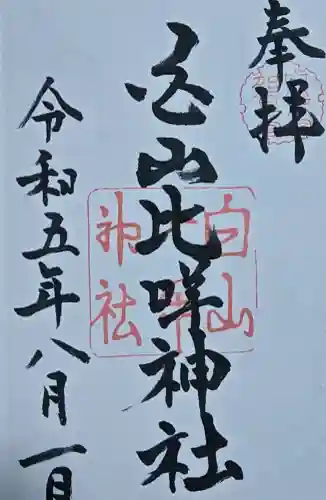 奉拝
白山比咩神社
令和五年八月一日
白山
神社